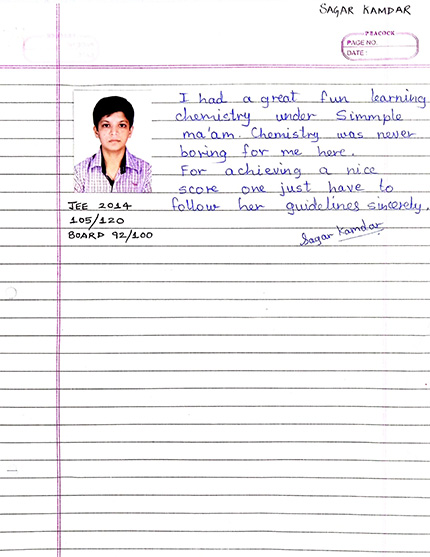 SAGAR KAMDAR
PEACOCK
PAGE NO.
DATE:
I had a great fun learning
chemistry under Simmple
ma'am. Chemistry was never
boring for me here.
For achieving a nice
score one just have to
follow her guidelines sincerely.
Sagar Kamdar
JEE 2014
105/120
BOARD 92/100